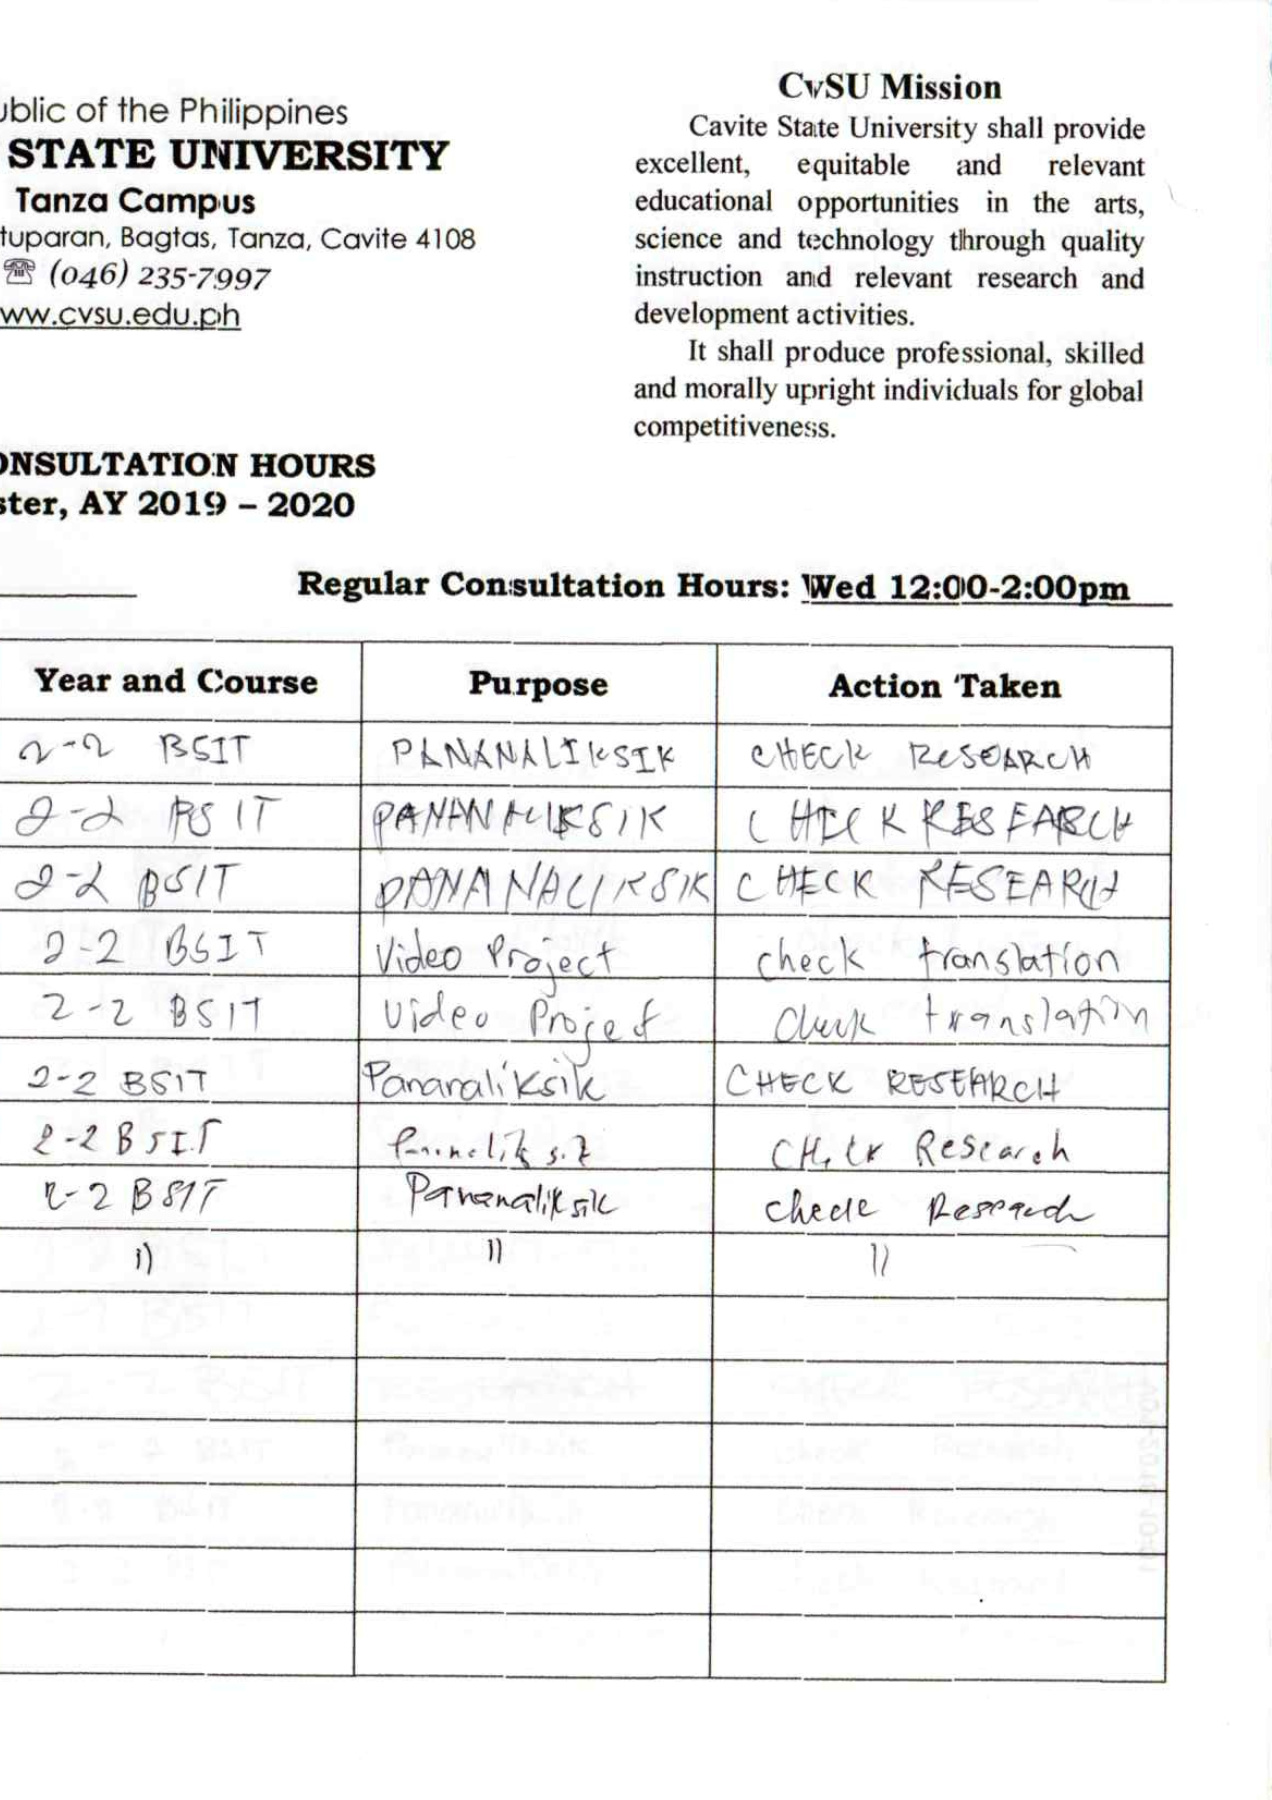 ublic of the Philippines
STATE UNIVERSITY
Tanza Campus
tuparan, Bagtas, Tanza, Cavite 4108
☎ (046) 235-7997
ww.cvsu.edu.ph
CvSU Mission
Cavite State University shall provide
excellent, equitable and relevant
educational opportunities in the arts,
science and technology through quality
instruction and relevant research and
development activities.
It shall produce professional, skilled
and morally upright individuals for global
competitiveness.
ONSULTATION HOURS
ster, AY 2019 – 2020
Regular Consultation Hours: Wed 12:00-2:00pm
Year and Course Purpose Action Taken
2-2 BSIT PANANALIKSIK CHECK RESEARCH
2-2 BSIT PANANALIKSIK CHECK RESEARCH
2-2 BSIT PANANALIKSIK CHECK RESEARCH
2-2 BSIT Video Project check translation
2-2 BSIT Video Project check translation
2-2 BSIT Pananaliksik CHECK RESEARCH
2-2 BSIT Research
2-2 BSIT Pananaliksik check Research
11 11 11